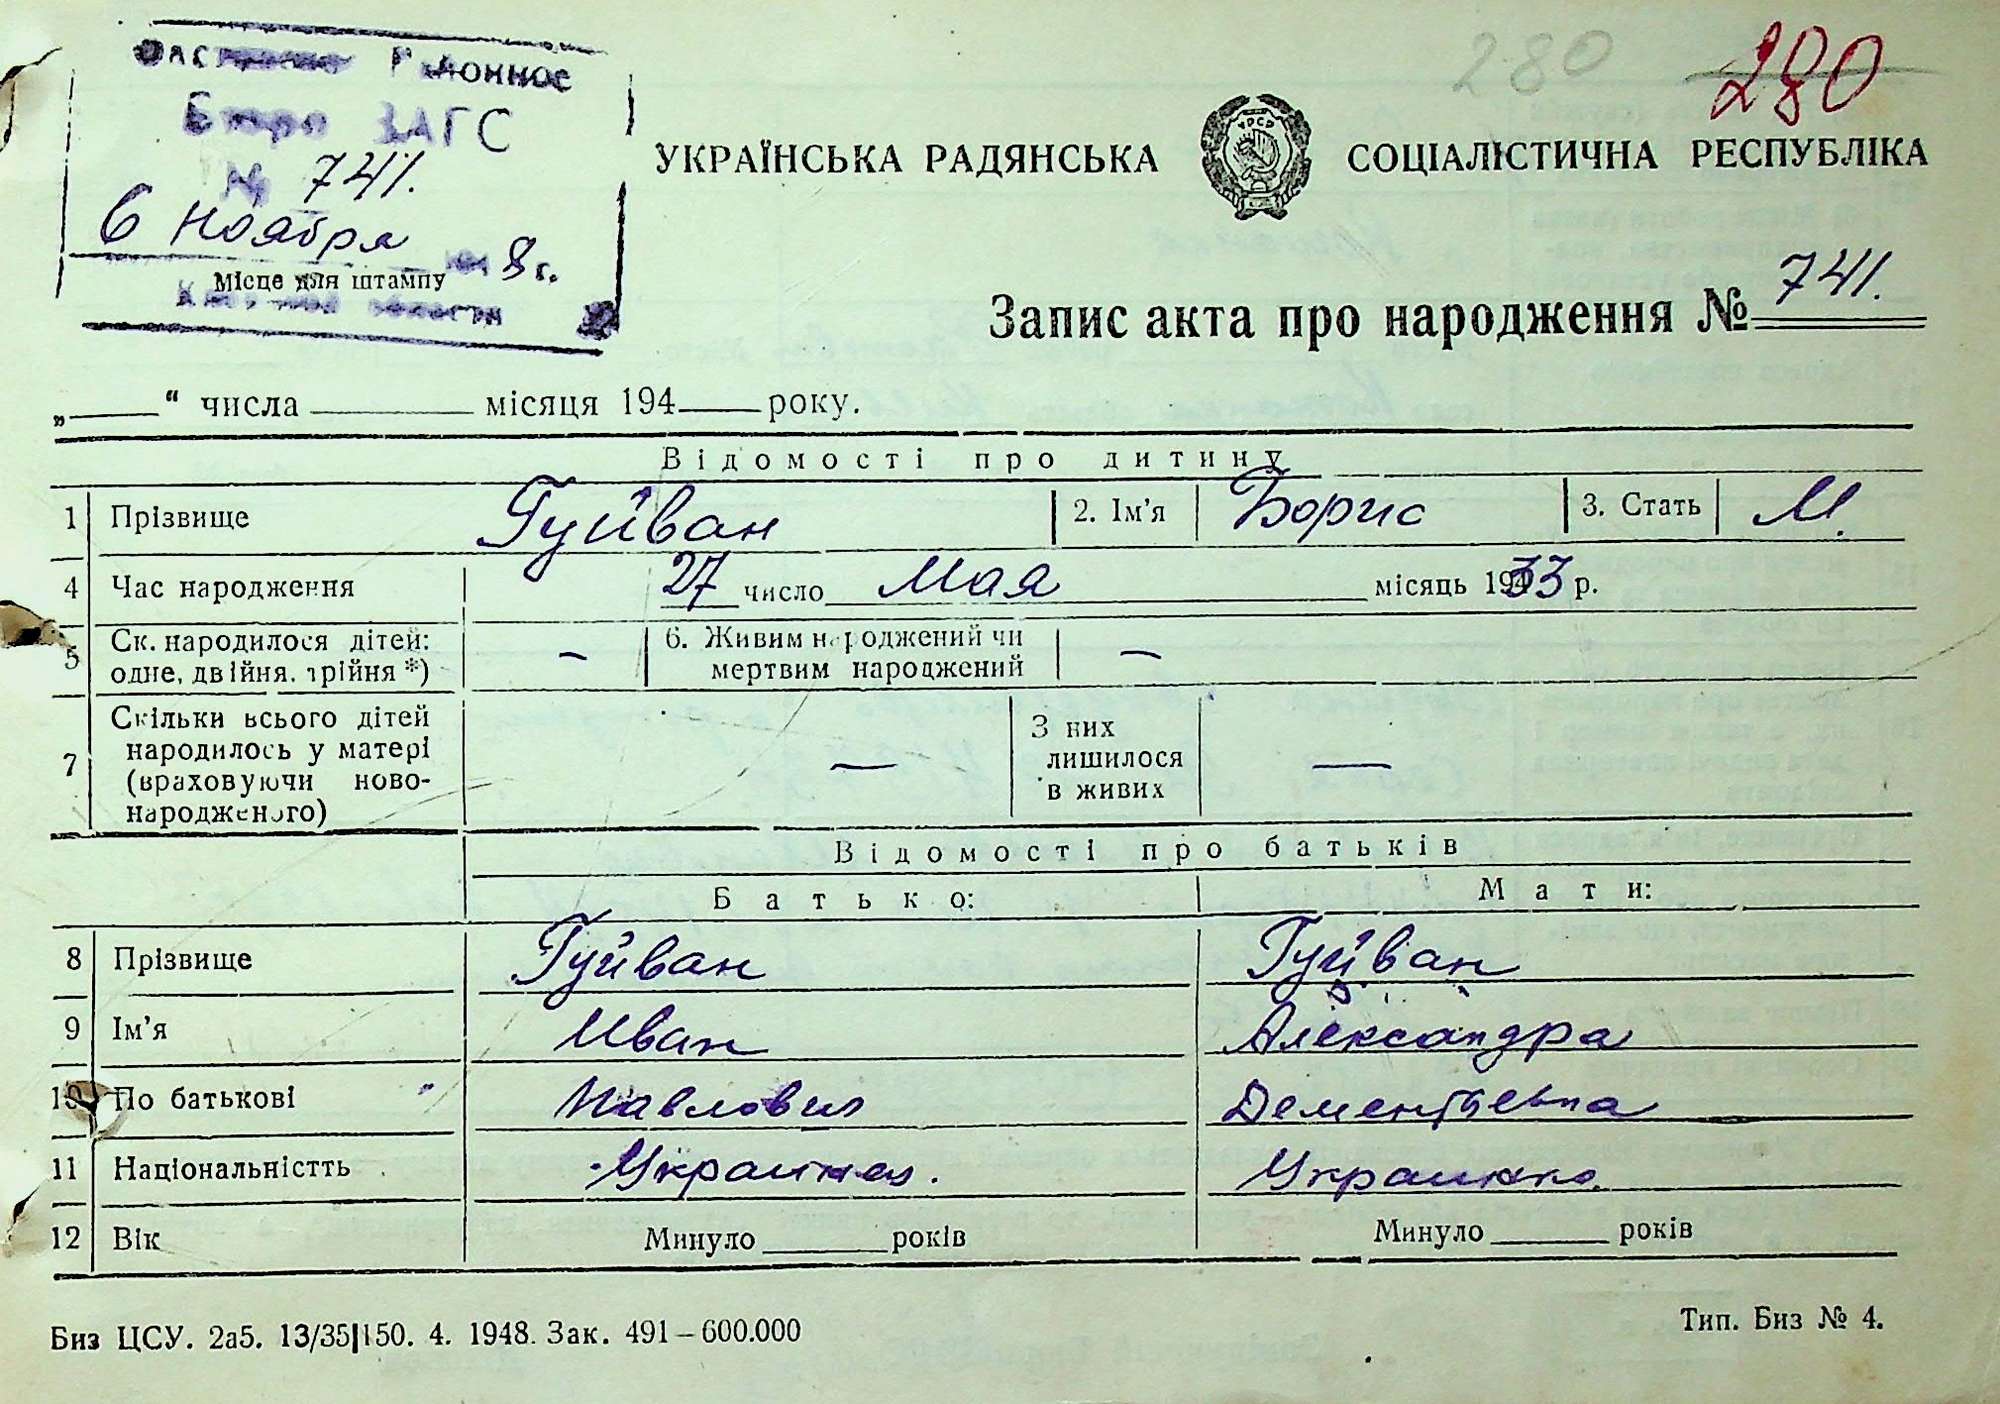 Районное
Бюро ЗАГС
280
280
№ 741.
6 Ноября 8 г.
Місце для штампу
области
УРСР
УКРАЇНСЬКА РАДЯНСЬКА СОЦІАЛІСТИЧНА РЕСПУБЛІКА
Запис акта про народження № 741.
„____“ числа ____ місяця 194__ року.
Відомості про дитину
1 Прізвище Гуйван 2. Ім’я Борис 3. Стать М.
4 Час народження 27 число Мая місяць 1933 р.
5 Ск. народилося дітей: одне, двійня, трійня *) — 6. Живим народжений чи мертвим народжений —
7 Скільки всього дітей народилось у матері (враховуючи ново-народженого) — З них лишилося в живих —
Відомості про батьків
Батько: Мати:
8 Прізвище Гуйван Гуйван
9 Ім’я Иван Александра
10 По батькові Павлович Дементьевна
11 Національністть Украинец. Украинка.
12 Вік Минуло ____ років Минуло ____ років
Биз ЦСУ. 2а5. 13/35|150. 4. 1948. Зак. 491–600.000
Тип. Биз № 4.